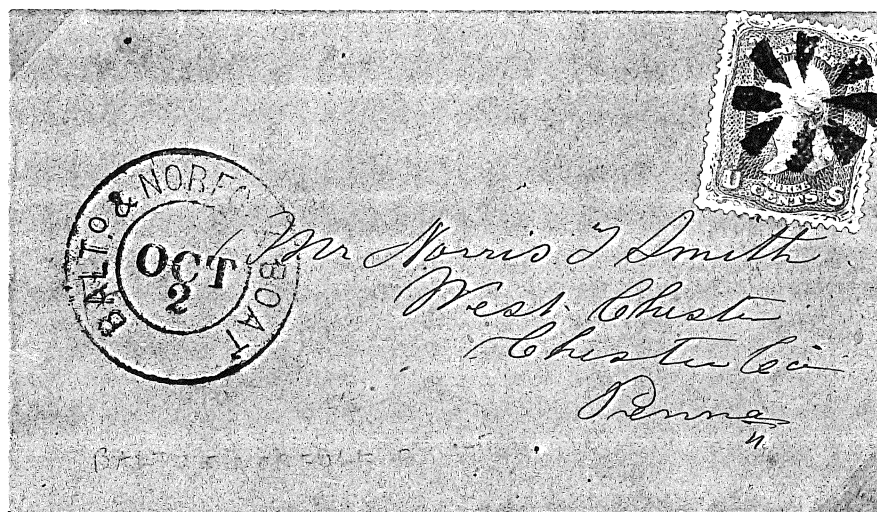 BALTO & NORFOLK BOAT
OCT
2
THREE
U CENTS S
Mr Norris T Smith
West Chester
Chester Co
Penna